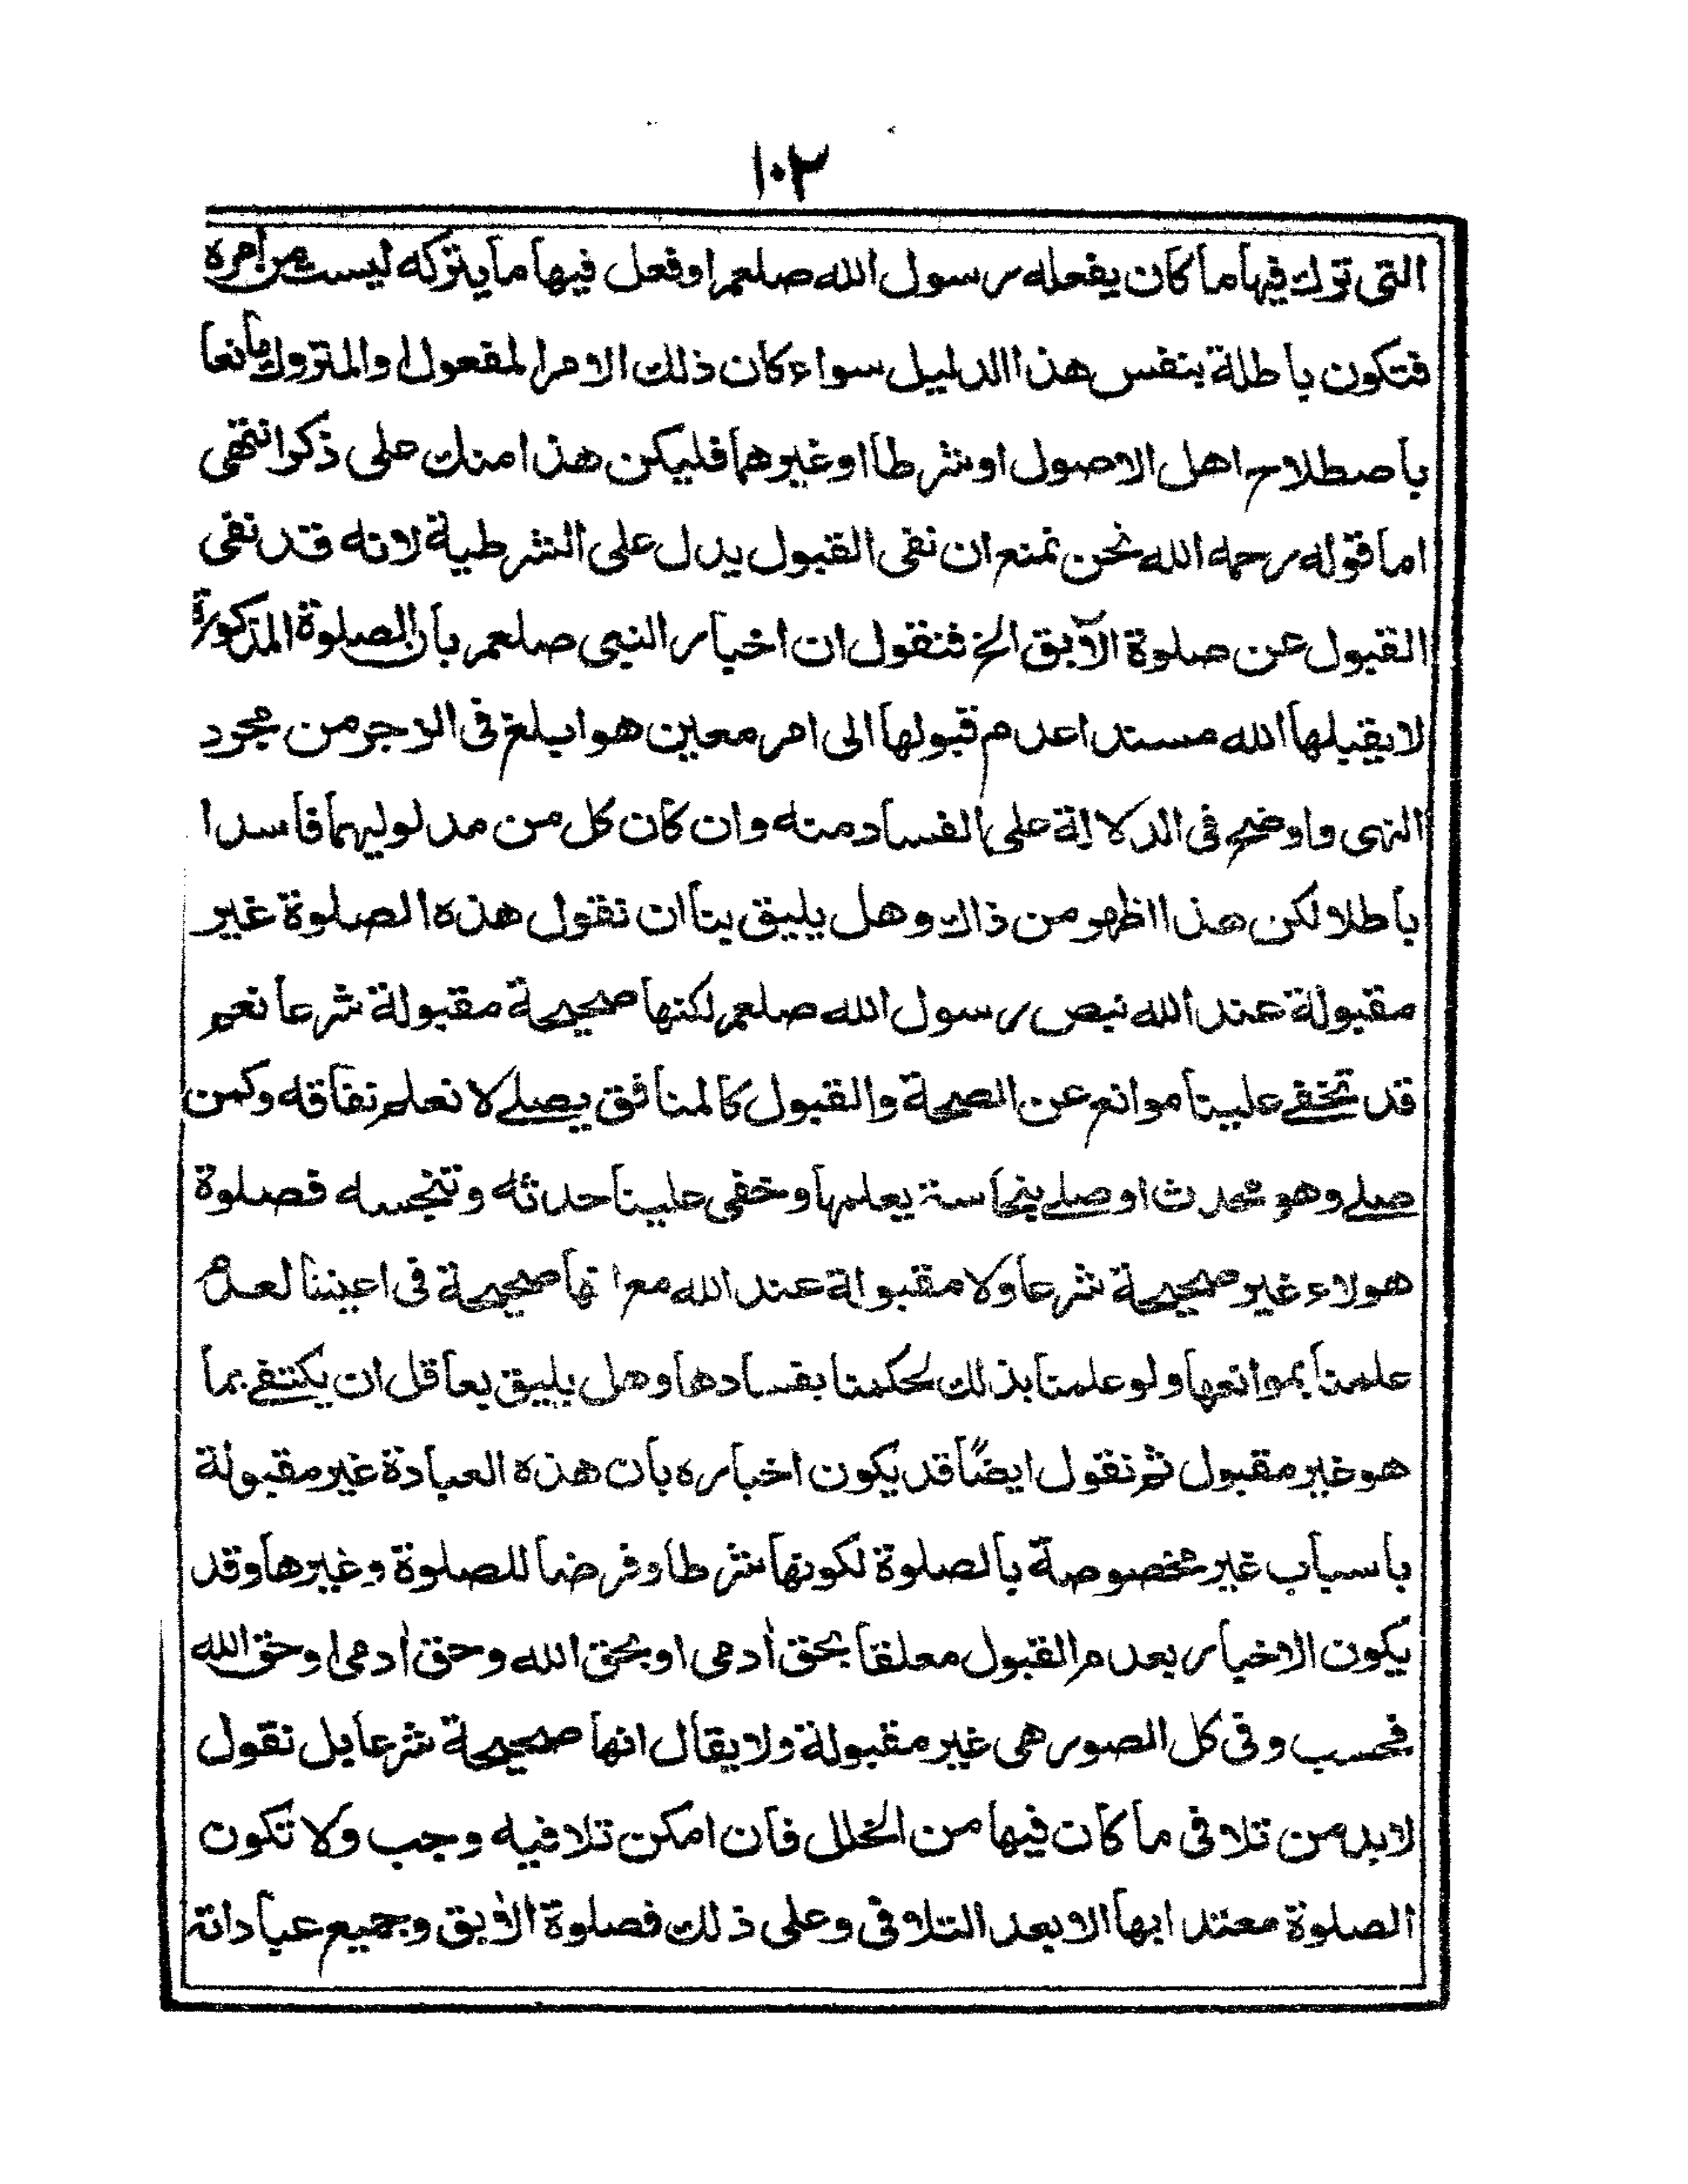 ١٠٢
التى ترك فيها ما كان يفعله رسول الله صلعم او فعل فيها ما يتركه ليست من امره
فتكون باطلة بنفس هذا الدليل سواء كان ذلك الامر المفعول او المتروك مانعا
باصطلاح اهل الاصول او شرطا او غيرهما فليكن هذا منك على ذكر انتهى
اما قوله رحمه الله نحن نمنع ان نفى القبول يدل على الشرطية لانه قد نفى
القبول عن صلوة الآبق الخ فنقول ان اخبار النبى صلعم بان الصلوة المذكورة
لا يقبلها الله مسندا عدم قبولها الى امر معين هو ابلغ فى الزجر من مجرد
النهى واوضح فى الدلالة على الفساد منه وان كان كل من مدلوليهما فاسدا
باطلا لكن هذا اظهر من ذاك وهل يليق بنا ان نقول هذه الصلوة غير
مقبولة عند الله بنص رسول الله صلعم لكنها صحيحة مقبولة شرعا نعم
قد تخفے علينا موانع عن الصحة والقبول كالمنافق يصلے لا نعلم نفاقه وكمن
صلے وهو محدث او صلے بنجاسة يعلمها وخفى علينا حدثه وتنجسه فصلوة
هولاء غير صحيحة شرعا ولا مقبولة عند الله مع انها صحيحة فى اعيننا لعدم
علمنا بموانعها ولو علمنا بذلك لحكمنا بفسادها وهل يليق بعاقل ان يكتفے بما
هو غير مقبول ثم نقول ايضًا قد يكون اخباره بان هذه العبادة غير مقبولة
باسباب غير مخصوصة بالصلوة لكونها شرطا وفرضا للصلوة وغيرها وقد
يكون الاخبار بعدم القبول معلقا بحق أدمى او بحق الله وحق أدمى او حق الله
فحسب وفى كل الصور هى غير مقبولة ولا يقال انها صحيحة شرعا بل نقول
لا بد من تلافى ما كان فيها من الخلل فان امكن تلافيه وجب ولا تكون
الصلوة معتدا بها الا بعد التلافى وعلى ذلك فصلوة الأبق وجميع عباداته